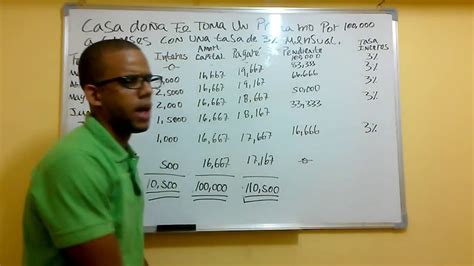 CASA DOÑA Fe TOMA UN PréstAmo Por 100,000
a 6 meses CON UNA TASA DE 3% MENSUAL.
Interes Amort Capital Pagaré Pendiente TASA INTERES
-0- 100,000 3%
3,000 16,667 19,667 83,333 3%
2,500 16,667 19,167 66,666 3%
2,000 16,667 18,667 50,000 3%
1,5000 16,667 18,167 33,333
1,000 16,667 17,667 16,666 3%
500 16,667 17,167 -0-
10,500 100,000 110,500